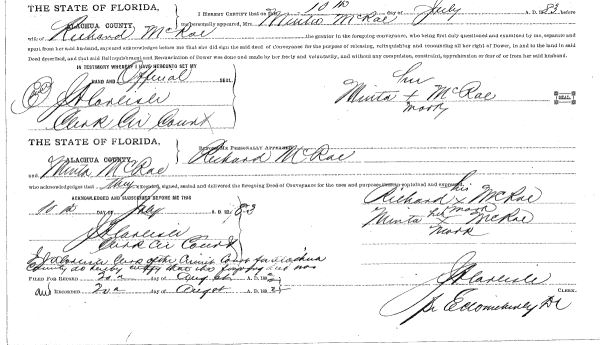 THE STATE OF FLORIDA,
ALACHUA COUNTY.
I HEREBY CERTIFY that on 10th day of July A. D. 1883, before
me personally appeared, Mrs. Minta McRae
wife of Richard McRae the grantor in the foregoing conveyance, who being first duly questioned and examined by me, separate and
apart from her said husband, says and acknowledges before me that she did sign the said deed of Conveyance for the purpose of releasing, relinquishing and renouncing all her right of Dower, in and to the land in said
Deed described, and that said Relinquishment and Renunciation of Dower was done and made by her freely and voluntarily, and without any compulsion, constraint, apprehension or fear of or from her said husband.
IN TESTIMONY WHEREOF I HAVE HEREUNTO SET MY
HAND AND Official SEAL
J A Carlisle
Clerk Cir Court
her
Minta + McRae SEAL.
mark
THE STATE OF FLORIDA,
ALACHUA COUNTY.
BEFORE ME PERSONALLY APPEARED
Richard McRae
and Minta McRae
who acknowledges that they executed, signed, sealed and delivered the foregoing Deed of Conveyance for the uses and purposes therein contained and expressed.
ACKNOWLEDGED AND SUBSCRIBED BEFORE ME THIS
10th DAY OF July A. D. 1883
J A Carlisle
Clerk Cir Court
his
Richard x McRae
mark
Minta her McRae
mark
Clerk of the Circuit Court for Alachua
County do hereby certify that this foregoing deed was
FILED FOR RECORD 2nd day of August A. D. 188
and RECORDED 2nd day of August A. D. 188
J A Carlisle
CLERK.